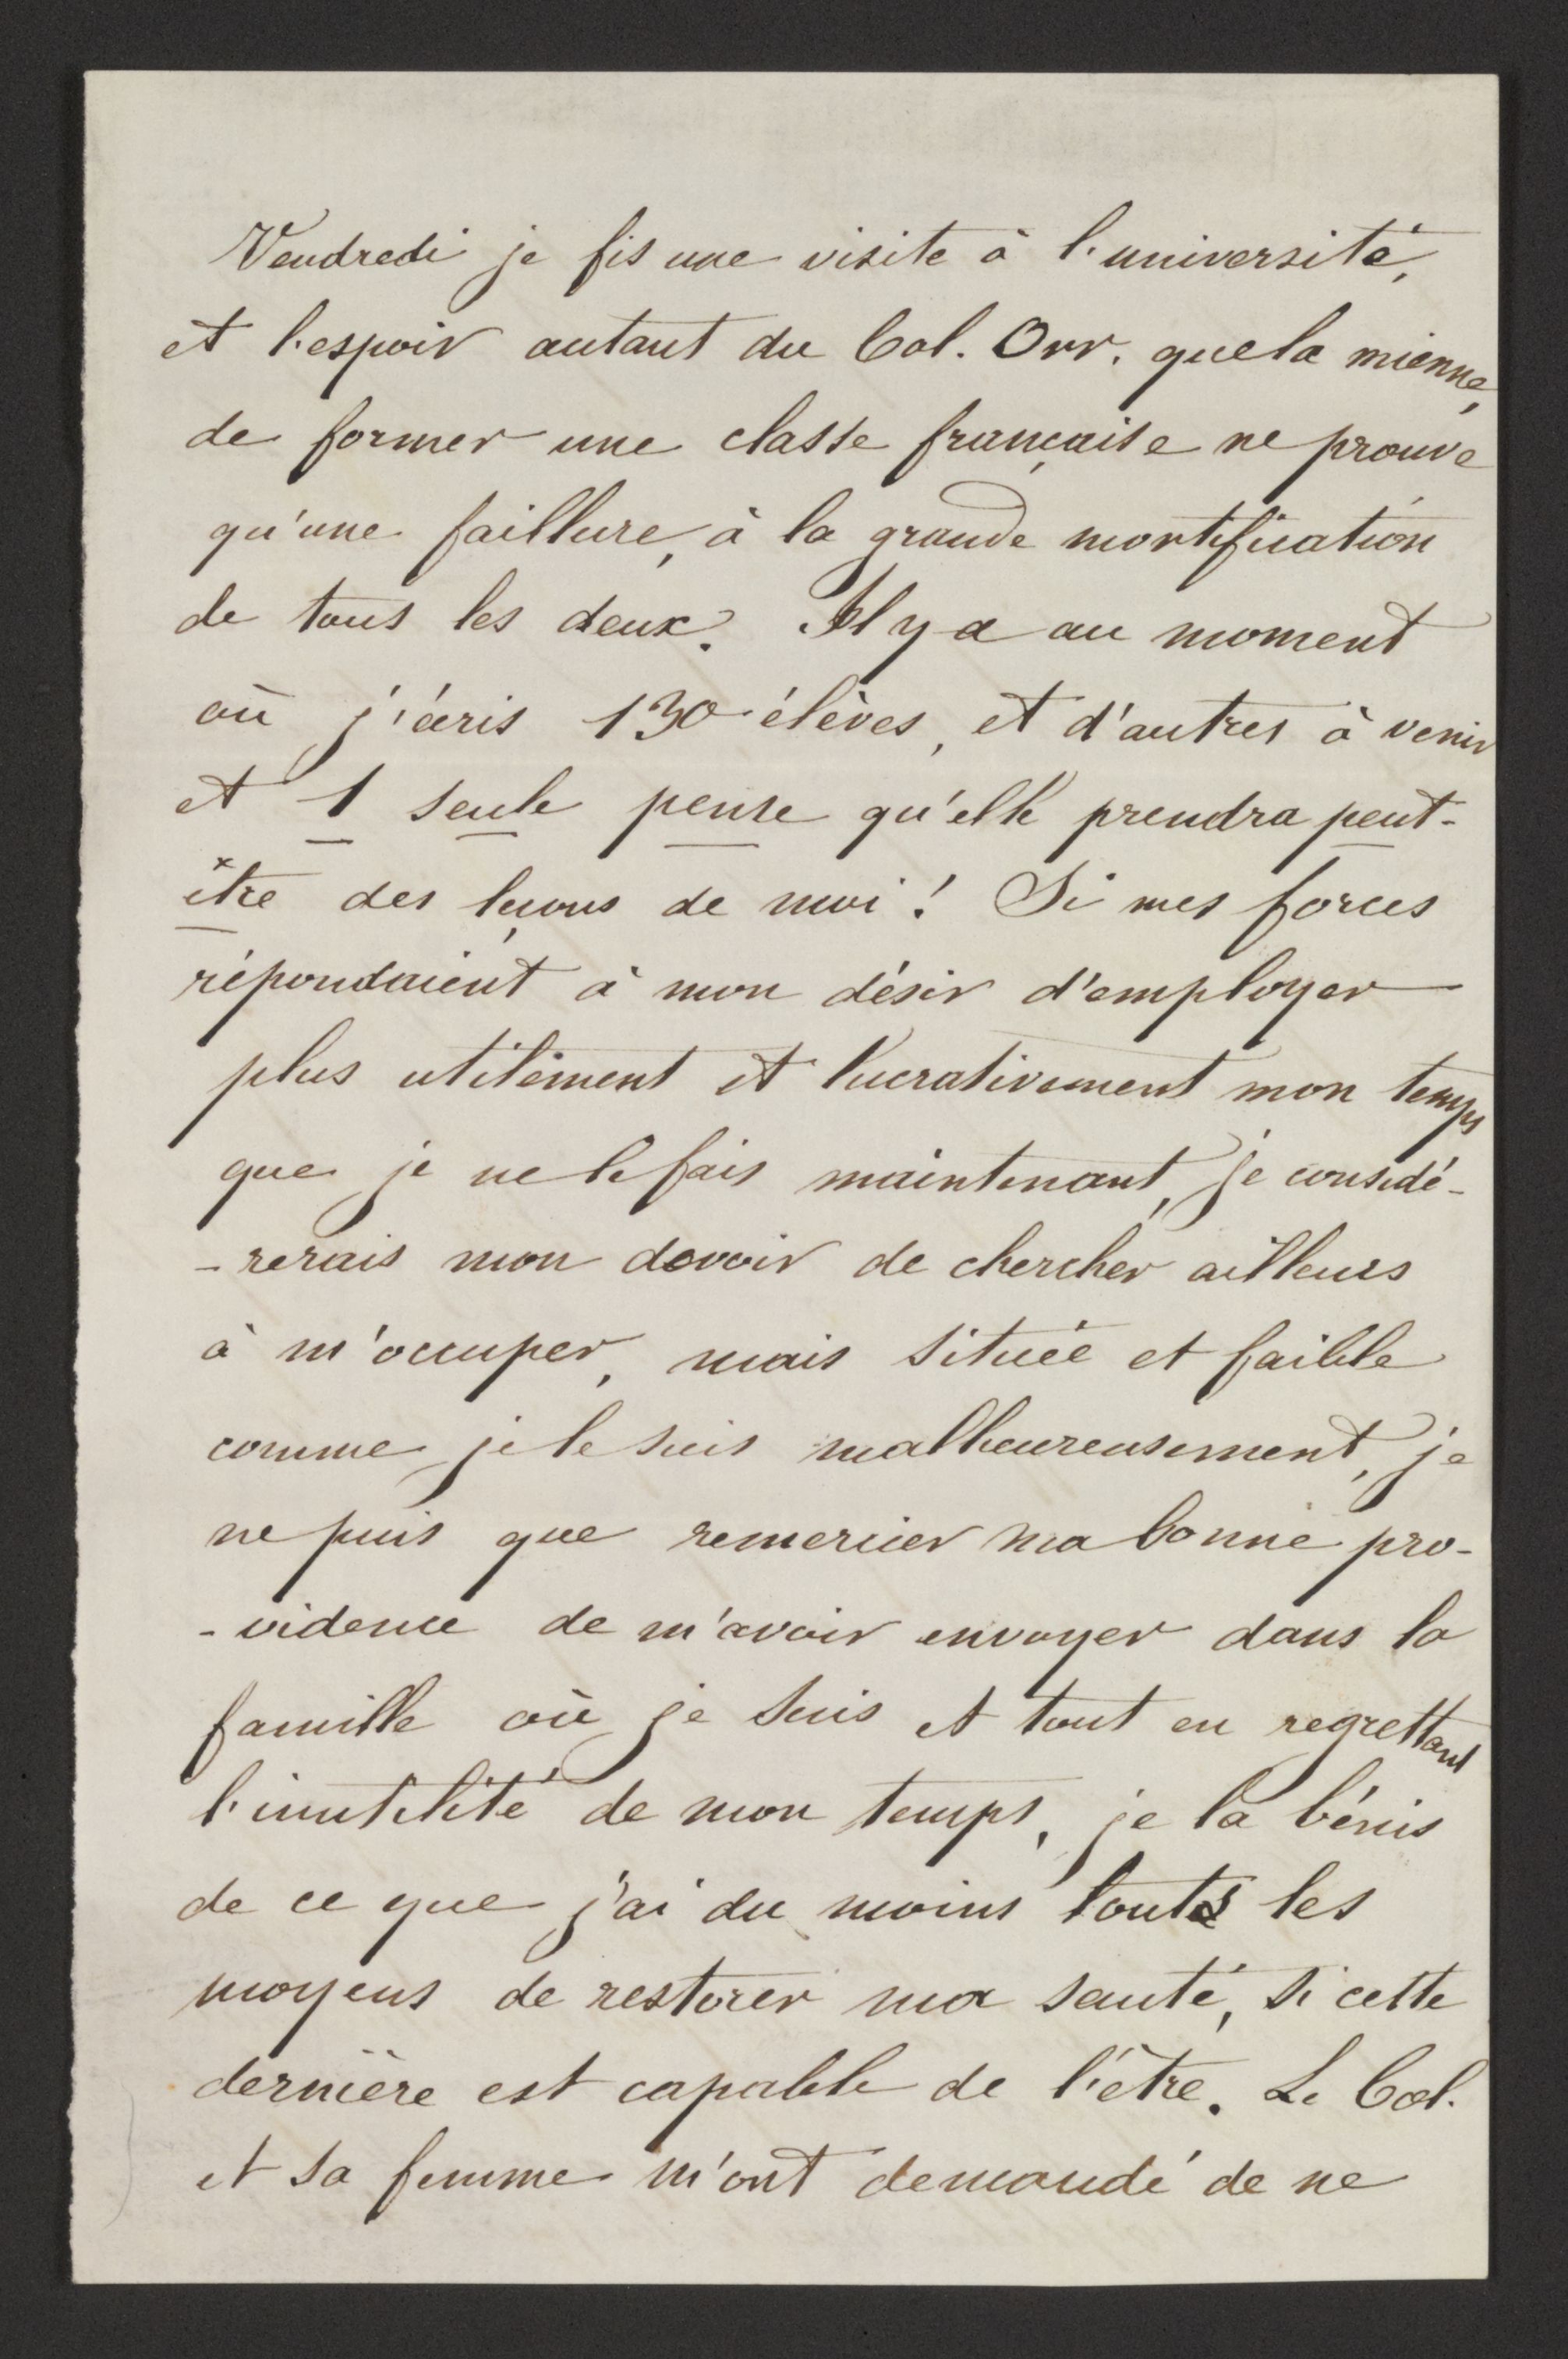 Vendredi je fis une visite à l'université,
et l'espoir autant du Col. Orr. que la mienne,
de former une classe française ne prouve
qu'une faillure, à la grande mortification
de tous les deux. Il y a au moment
où j'écris 130 élèves, et d'autres à venir
et 1 seule pense qu'elle prendra peut-
être des leçons de moi! Si mes forces
répondaient à mon désir d'employer
plus utilement et lucrativement mon temps
que je ne le fais maintenant, je considé-
-rerais mon devoir de chercher ailleurs
à m'occuper, mais située et faible
comme je le suis malheureusement, je
ne puis que remercier ma bonne pro-
-vidence de m'avoir envoyer dans la
famille où je suis et tout en regrettant
l'inutilité de mon temps, je la bénis
de ce que j'ai du moins touts les
moyens de restorer ma santé, si cette
dernière est capable de l'être. Le Col.
et sa femme m'ont demandé de ne